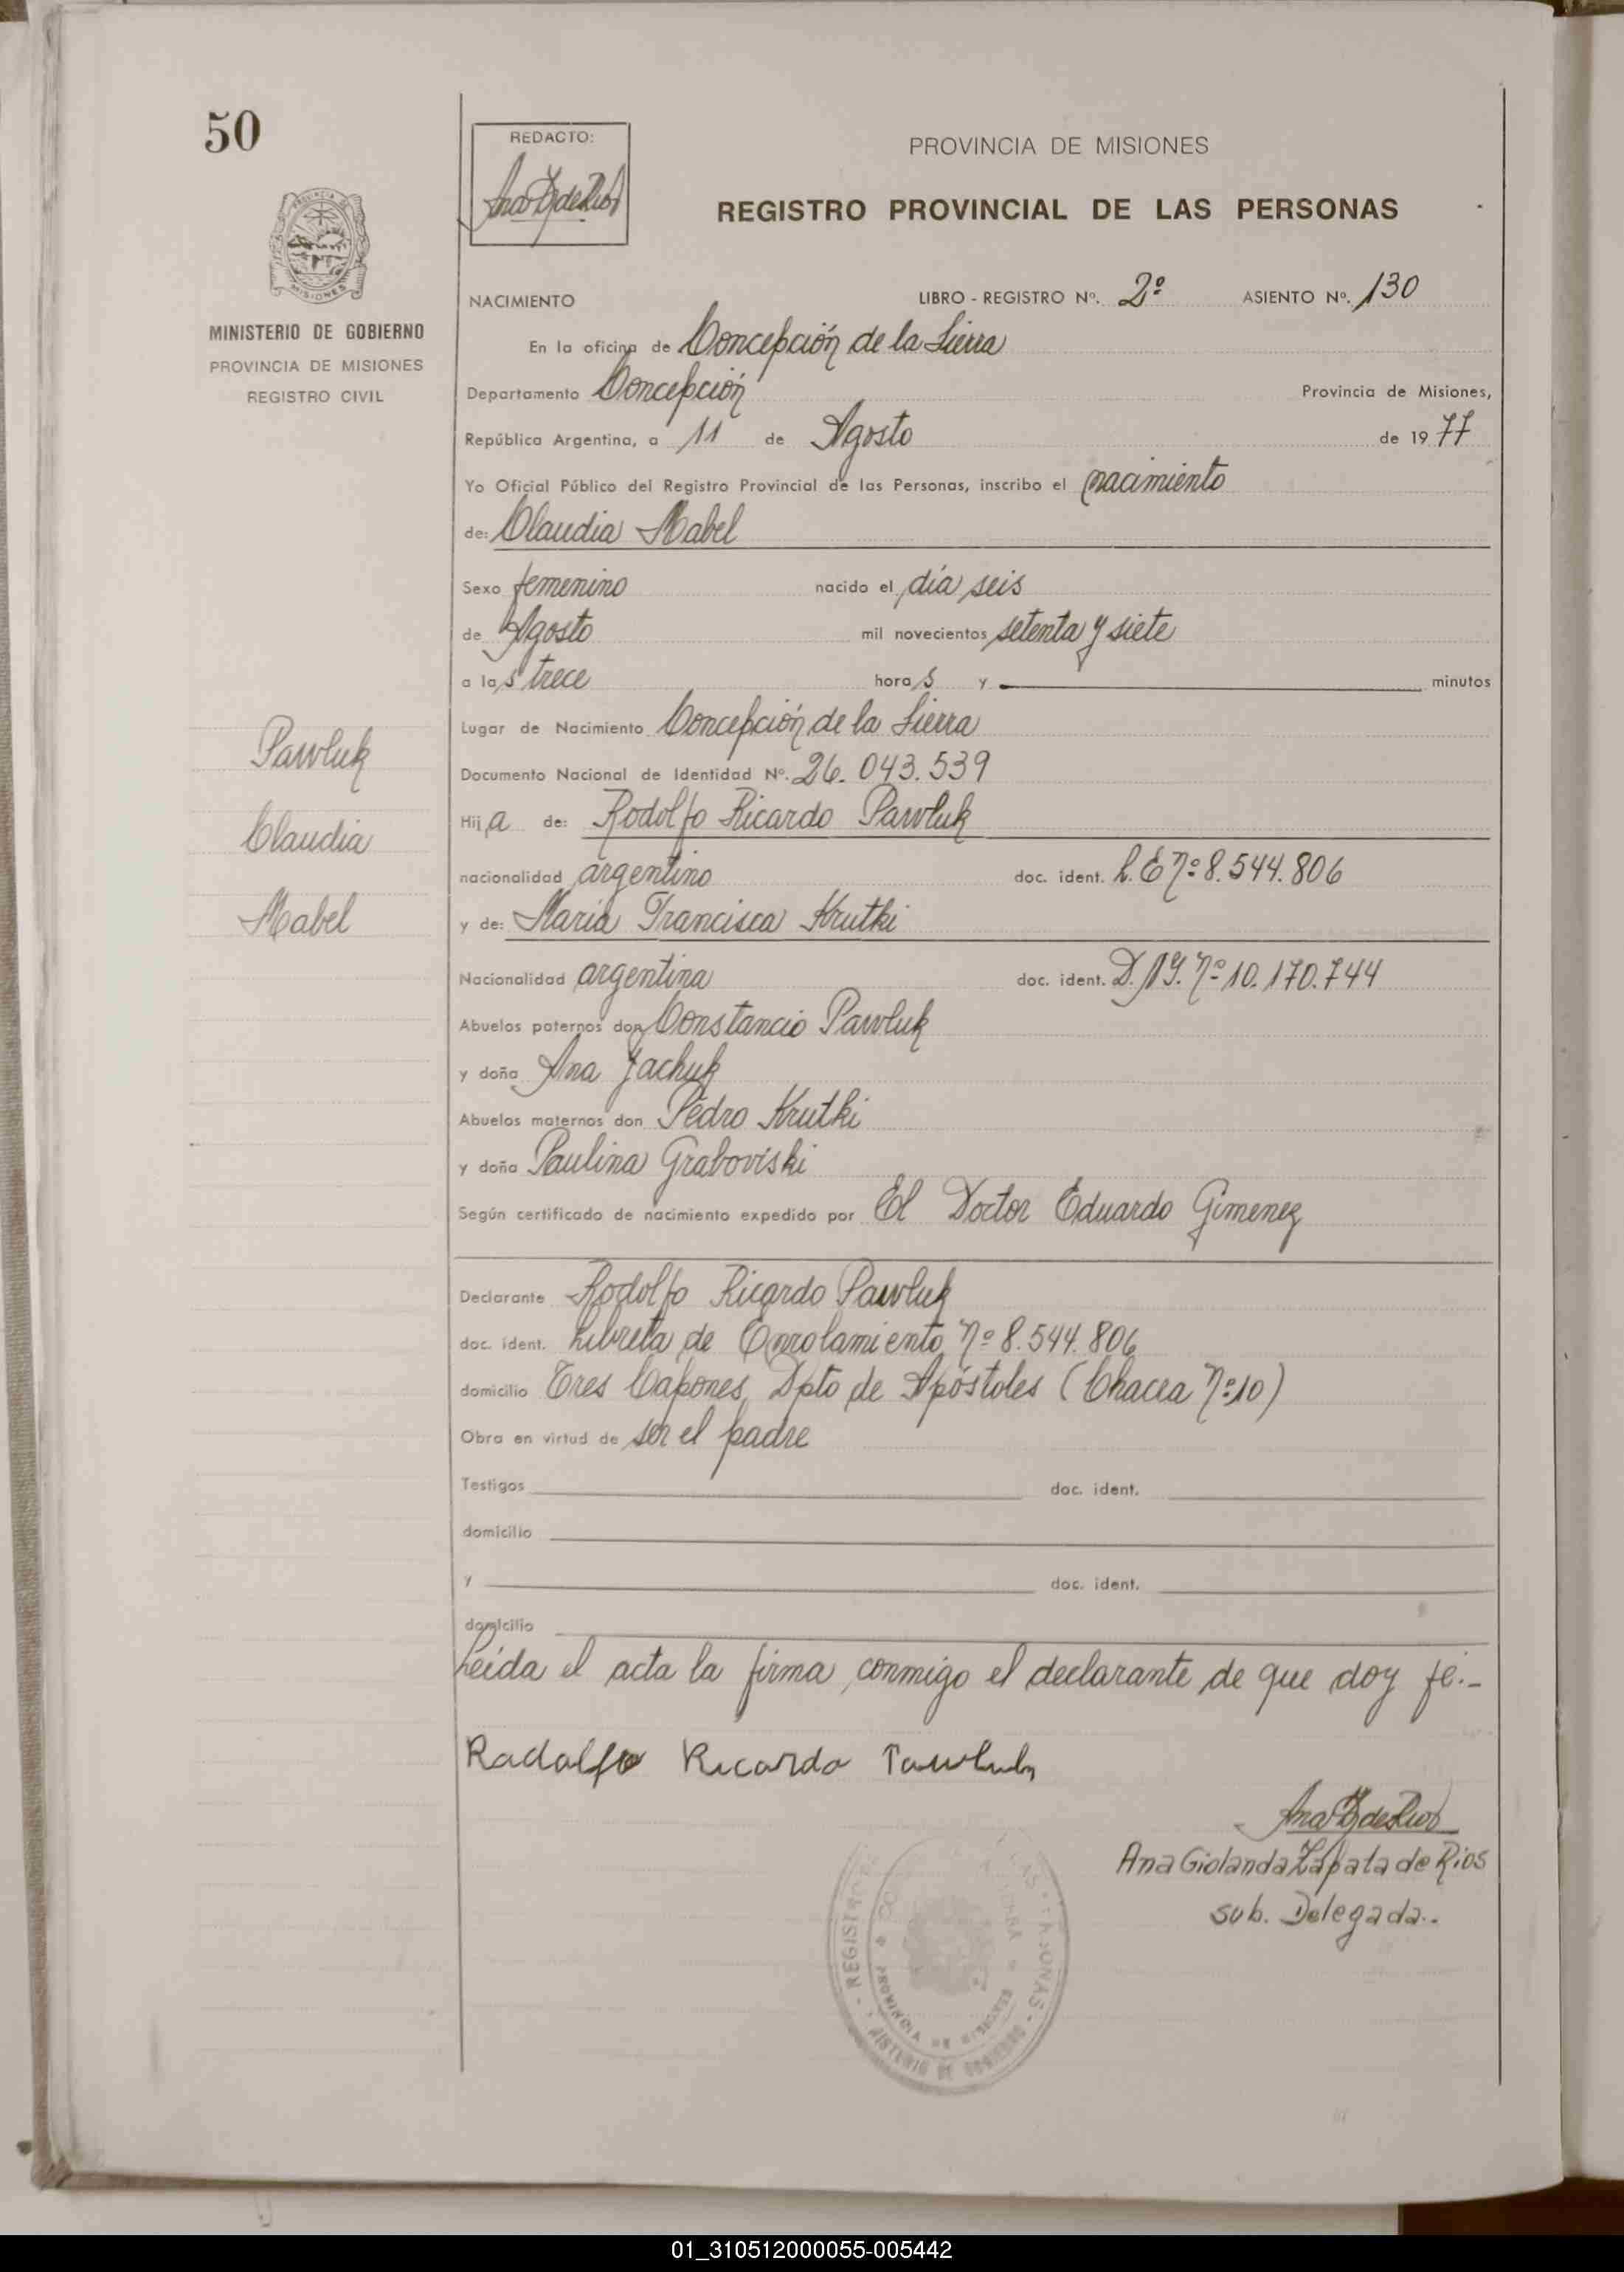 50
REDACTO:
PROVINCIA DE MISIONES
REGISTRO PROVINCIAL DE LAS PERSONAS
MISIONES
MINISTERIO DE GOBIERNO
PROVINCIA DE MISIONES
REGISTRO CIVIL
NACIMIENTO LIBRO - REGISTRO Nº. 2º ASIENTO Nº. 130
En la oficina de Concepción de la Sierra
Departamento Concepción Provincia de Misiones,
República Argentina, a 11 de Agosto de 1977
Yo Oficial Público del Registro Provincial de las Personas, inscribo el nacimiento
de: Claudia Mabel
Sexo femenino nacido el día seis
de Agosto mil novecientos setenta y siete
a las trece horas y minutos
Lugar de Nacimiento Concepción de la Sierra
Pawluk
Documento Nacional de Identidad Nº. 26.043.539
Claudia
Hija de: Rodolfo Ricardo Pawluk
nacionalidad argentino doc. ident. L.E Nº 8.544.806
Mabel
y de: Maria Francisca Krutki
Nacionalidad argentina doc. ident. D.N.I. Nº 10.170.744
Abuelos paternos don Constancio Pawluk
y doña Ana Jachuk
Abuelos maternos don Pedro Krutki
y doña Paulina Graboviski
Según certificado de nacimiento expedido por El Doctor Eduardo Gimenez
Declarante Rodolfo Ricardo Pawluk
doc. ident. Libreta de Enrolamiento Nº 8.544.806
domicilio Tres Capones, Dpto de Apóstoles (Chacra Nº 10)
Obra en virtud de ser el padre
Testigos doc. ident.
domicilio
y doc. ident.
domicilio
Leída el acta la firma conmigo el declarante de que doy fé.-
Radolfo Ricardo Pawluk
Ana Giolanda Zapata de Rios
sub. Delegada..
PROVINCIA DE MISIONES
01_310512000055-005442